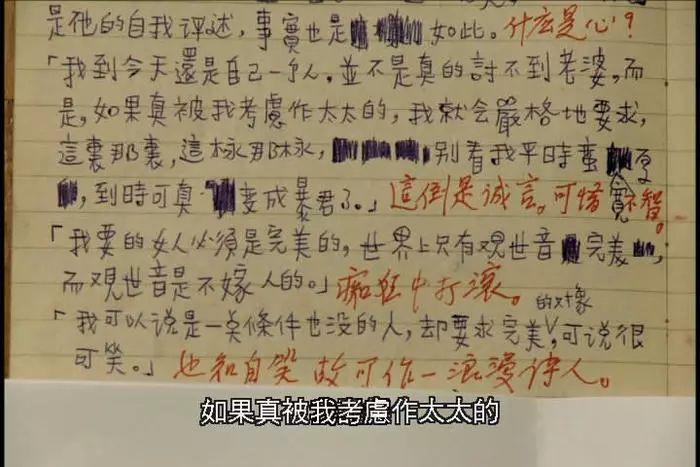 是他的自我评述,事實也是如此。什么是心?
「我到今天還是自己一个人。並不是真的討不到老婆,而
是,如果真被我考慮作太太的,我就会嚴格地要求,
這裏那裏,這樣那樣,别看我平時蛮
,到時可真變成暴君了。」這倒是诚言。可惜不智。
「我要的女人必須是完美的,世界上只有观世音完美,
而观世音是不嫁人的。」痴狂中打滚。
「我可以说是一点條件也没的人,却要求完美的对像,可说很
可笑。」也知自笑 故可作一浪漫诗人。
如果真被我考慮作太太的